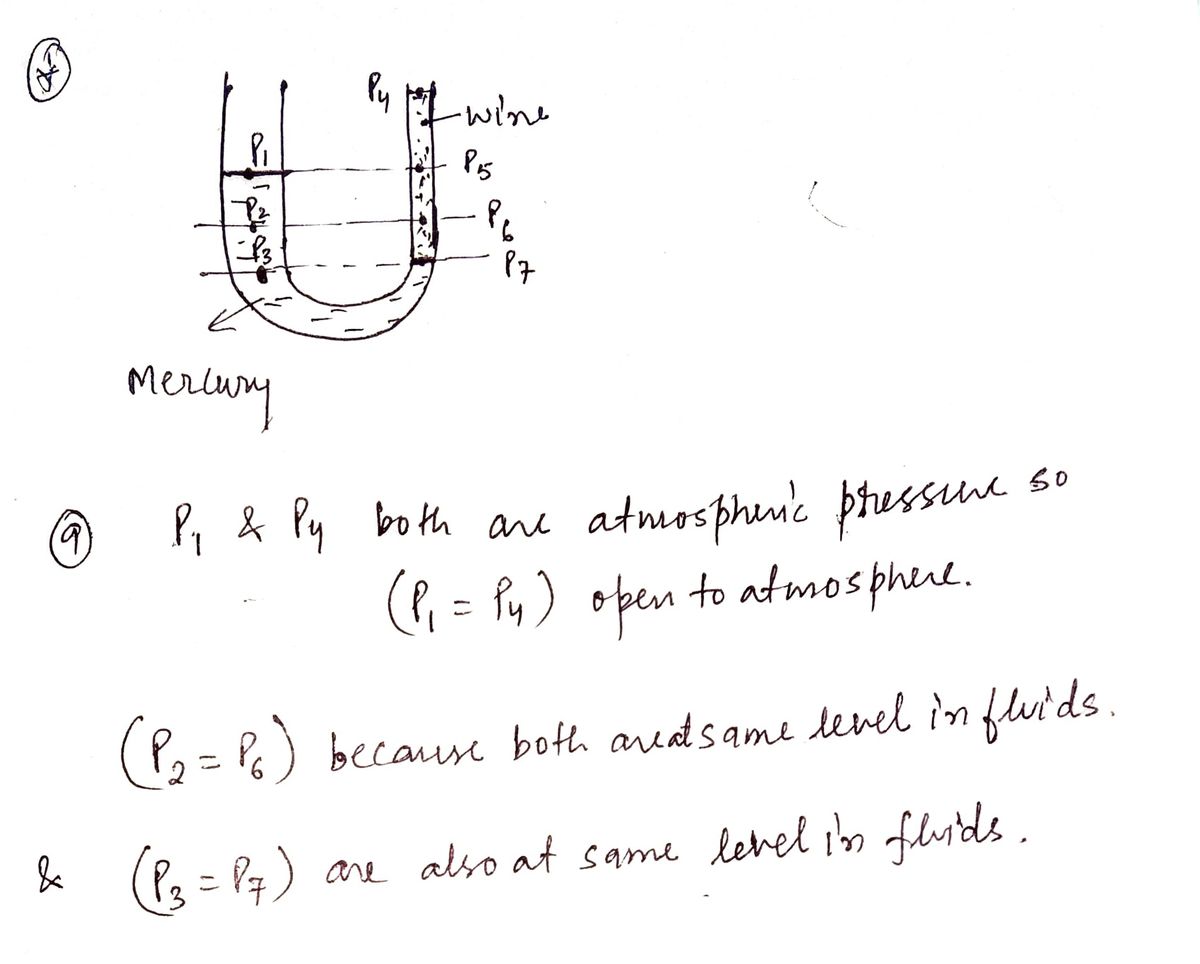 P4
wine
P1
P5
P2
P6
P3
P7
Mercury
(a) P1 & P4 both are atmospheric pressure so
(P1 = P4) open to atmosphere.
(P2 = P6) because both are at same level in fluids.
& (P3 = P7) are also at same level in fluids.